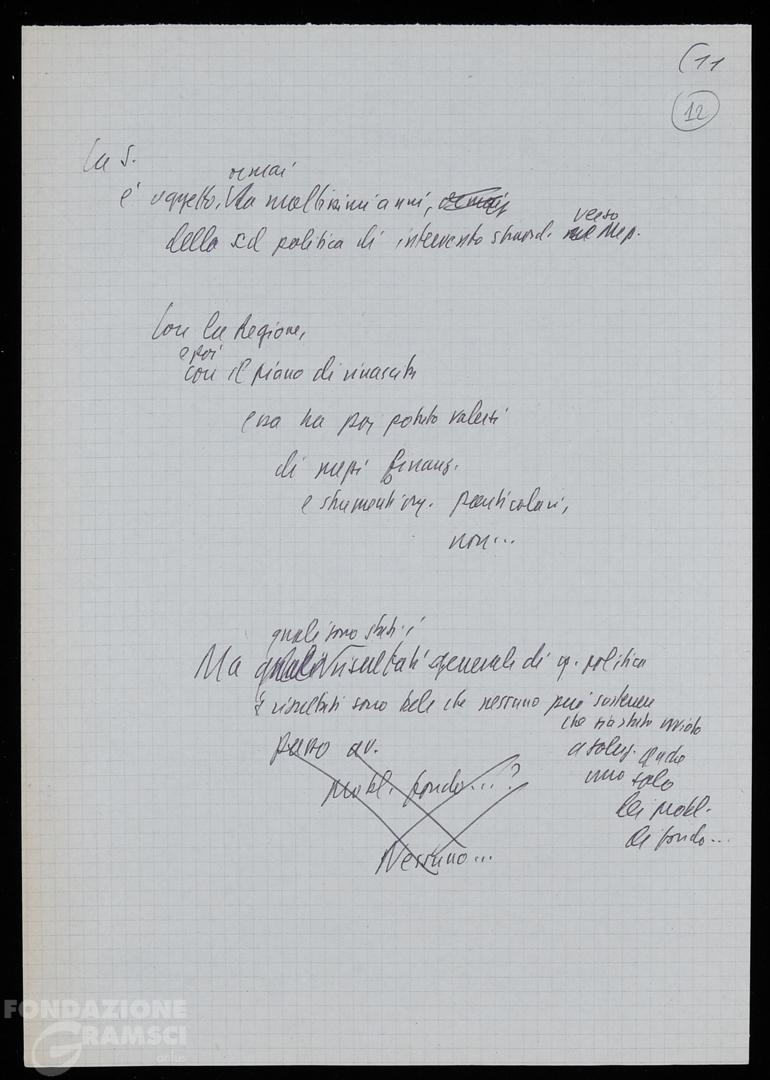 (11
12
La S.
ormai
è oggetto, da moltissimi anni, ormai
verso
della cd politica di intervento straord. nel Mep.
Con la Regione,
e poi
con il piano di rinascita
essa ha poi potuto valersi
di mezzi finanz.
e strumenti org. particolari,
non...
quali sono stati i
Ma quali risultati generali di qs. politica
I risultati sono tali che nessuno può sostenere
che sia stato avviato
a soluz. anche
uno solo
dei probl.
di fondo...
passo av.
probl. fondo...?
Nessuno...
FONDAZIONE
GRAMSCI
onlus